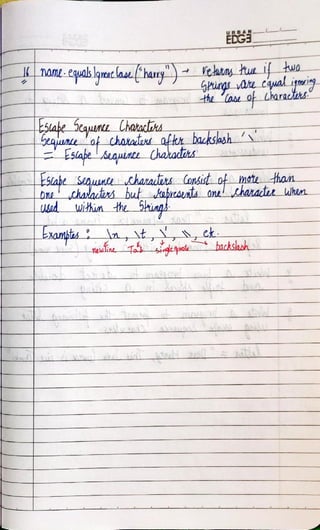 URBAN
EDGE
16 name.equalsIgnoreCase("harry") → returns true if two
Strings are equal ignoring
the case of characters.
Escape Sequence Characters
Sequence of characters after backslash '\'
= Escape sequence Characters
Escape sequence characters consist of more than
one character but represents one character when
used within the Strings.
Examples : \n, \t, \', \\, etc.
newline Tab single quote backslash